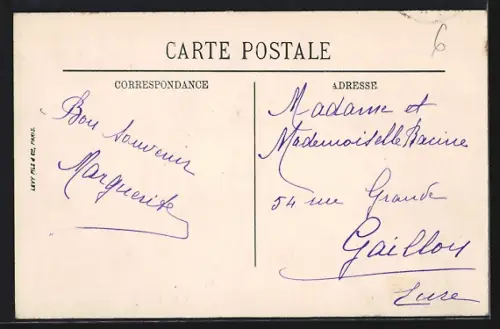 6
CARTE POSTALE
CORRESPONDANCE
ADRESSE
LEVY FILS & Cie, PARIS.
Bon souvenir
Marguerite
Madame et
Mademoiselle Racine
54 rue Grande
Gaillon
Eure